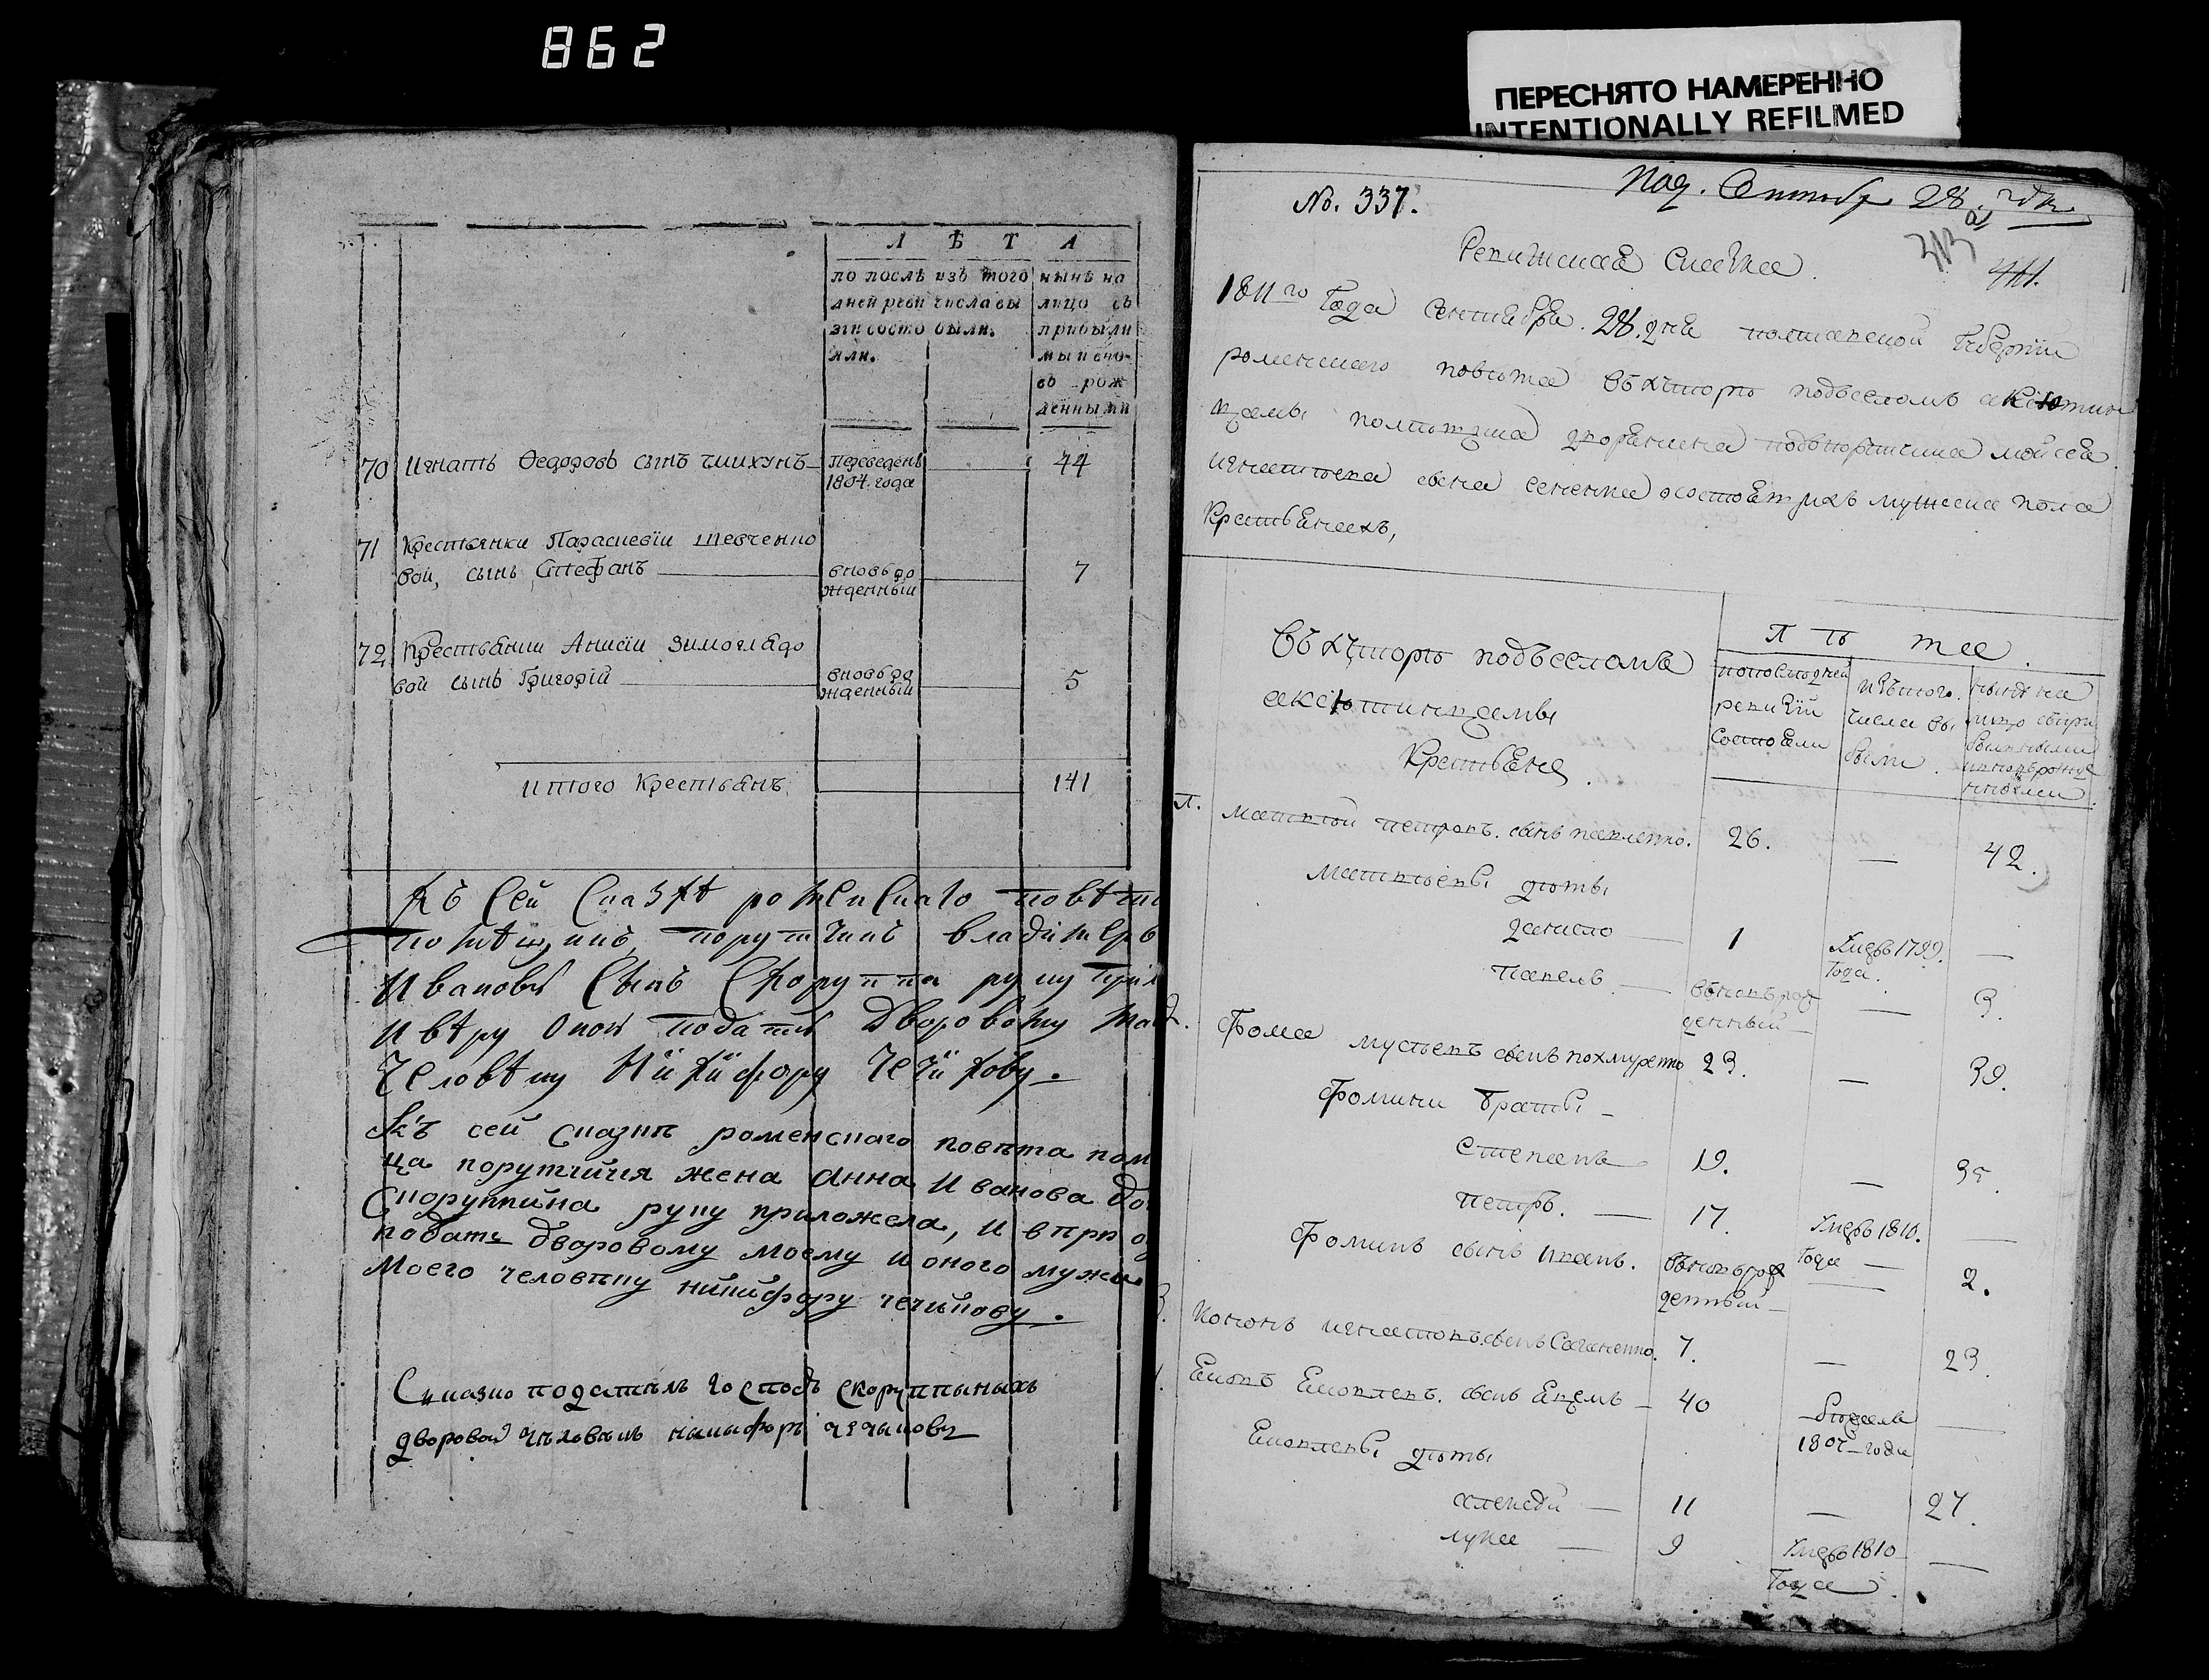 862
ПЕРЕСНЯТО НАМЕРЕННО
INTENTIONALLY REFILMED
Л Ѣ Т А
по послѣ изъ того нынѣ на
дней реви числа вы лицо съ
зіи состо были. прибыли
яли. мы и вно-
въ рож
денными
70 Игнатъ Федоровъ сынъ Чмихунъ — Переведенъ 44
1804. года
71 Крестьянки Параскевіи Шевченко
вой, сынъ Стефанъ вновь ро 7
жденный
72 Крестьянки Анисіи Зимогляdo
вой сынъ Григорій вновь ро 5
жденный
итого Крестьянъ 141
Къ сей сказкѣ роменскаго повѣта
помѣщикъ, порутчикъ владимеръ
Ивановъ сынъ Скоруппа руку
и вѣру оной подать дворовому
человѣку Никифору Чечикову.
Къ сей сказкѣ роменскаго повѣта пом
ца порутчика жена Анна Иванова до
Скоруппина руку приложела, и впрп
подать дворовому моему и оного мужа
моего человѣку никифору чечикову.
Сказко податель господъ скоруппиныхъ
дворовой человѣкъ никифоръ чечыковъ
№. 337. Под. Сентябр 28. дня
Ревижская Сказка. 313 411.
1811го Года Сентября. 28. дня полтавской Губерніи
роменскаго повѣта въ хуторѣ подъселомъ аксютин
цамы помѣщика дворянина подпоручика мойсея
игнатьева сына сененка состоящихъ мужеска пола
Крестьянехъ,
Въ хуторѣ подъселомъ Л Ѣ та.
аксютинцамы
Крестьяне.
попослѣдней ревизій состояли
изътого. числа вы были.
нынѣ на лицо
Матвѣй петровъ. сынъ павленко. 26. — 42.
Матвѣевы дѣты
данило — 1 Умеръ 1799. —
Года.
павелъ — вновь рож — 3.
денный —
2. Фома мусѣевъ сынъ похмуренко 23. — 39.
Фомины браты —
Степанъ 19. — 35.
петръ. — 17. Умеръ 1810. —
Года
Фоминъ сынъ иванъ. вновь рож — 2.
денный —
3. Кононъ игнатовъ. сынъ Саганенко. 7. — 23
Яковъ Яковлевъ. сынъ Яцемъ — 40 —
180 — года
Яковлевы дѣты
алексѣй — 11 — 27.
лука — 9 Умеръ 1810 —
Года.